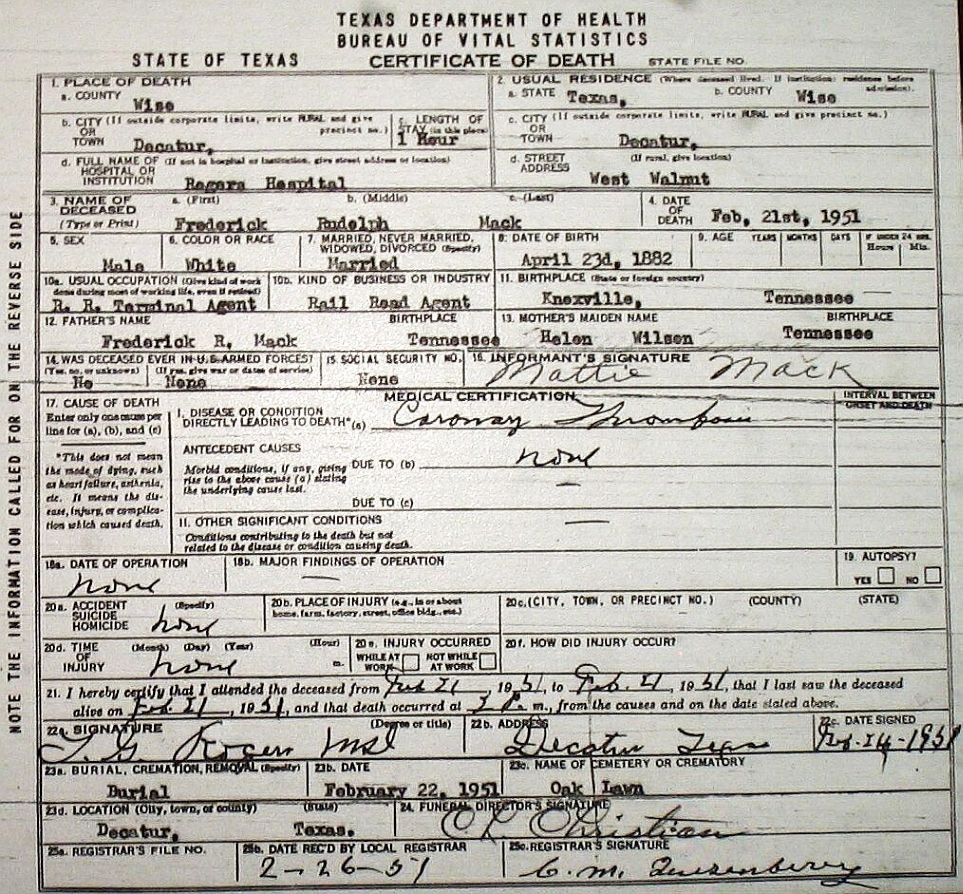 TEXAS DEPARTMENT OF HEALTH
BUREAU OF VITAL STATISTICS
STATE OF TEXAS CERTIFICATE OF DEATH STATE FILE NO.
1. PLACE OF DEATH
a. COUNTY Wise
2. USUAL RESIDENCE (Where deceased lived. If institution: residence before admission).
a. STATE Texas, b. COUNTY Wise
b. CITY (If outside corporate limits, write RURAL and give precinct no.)
OR
TOWN Decatur,
c. LENGTH OF
STAY (in this place)
1 Hour
c. CITY (If outside corporate limits, write RURAL and give precinct no.)
OR
TOWN Decatur,
d. FULL NAME OF (If not in hospital or institution, give street address or location)
HOSPITAL OR
INSTITUTION Rogers Hospital
d. STREET (If rural, give location)
ADDRESS West Walnut
3. NAME OF a. (First) b. (Middle) c. (Last)
DECEASED
(Type or Print) Frederick Rudolph Mack
4. DATE
OF
DEATH Feb, 21st, 1951
5. SEX
Male
6. COLOR OR RACE
White
7. MARRIED, NEVER MARRIED,
WIDOWED, DIVORCED (Specify)
Married
8. DATE OF BIRTH
April 23d, 1882
9. AGE YEARS MONTHS DAYS IF UNDER 24 HRS.
Hours Min.
10a. USUAL OCCUPATION (Give kind of work
done during most of working life, even if retired)
R. R. Terminal Agent
10b. KIND OF BUSINESS OR INDUSTRY
Rail Road Agent
11. BIRTHPLACE (State or foreign country)
Knoxville, Tennessee
12. FATHER'S NAME BIRTHPLACE
Frederick R. Mack Tennessee
13. MOTHER'S MAIDEN NAME BIRTHPLACE
Helen Wilson Tennessee
14. WAS DECEASED EVER IN U.S. ARMED FORCES?
(Yes, no, or unknown) (If yes, give war or dates of service)
No None
15. SOCIAL SECURITY NO.
None
16. INFORMANT'S SIGNATURE
Mattie Mack
MEDICAL CERTIFICATION
INTERVAL BETWEEN
ONSET AND DEATH
17. CAUSE OF DEATH
Enter only one cause per
line for (a), (b), and (c)
*This does not mean
the mode of dying, such
as heart failure, asthenia,
etc. It means the dis-
ease, injury, or complica-
tion which caused death.
I. DISEASE OR CONDITION
DIRECTLY LEADING TO DEATH* (a)
ANTECEDENT CAUSES
Morbid conditions, if any, giving
rise to the above cause (a) stating
the underlying cause last.
DUE TO (b) none
DUE TO (c) —
II. OTHER SIGNIFICANT CONDITIONS —
Conditions contributing to the death but not
related to the disease or condition causing death.
18a. DATE OF OPERATION
none
18b. MAJOR FINDINGS OF OPERATION
—
19. AUTOPSY?
YES NO
20a. ACCIDENT (Specify)
SUICIDE
HOMICIDE none
20b. PLACE OF INJURY (e.g., in or about
home, farm, factory, street, office bldg., etc.)
20c. (CITY, TOWN, OR PRECINCT NO.) (COUNTY) (STATE)
20d. TIME (Month) (Day) (Year) (Hour)
OF
INJURY none m.
20e. INJURY OCCURRED
WHILE AT
WORK
NOT WHILE
AT WORK
20f. HOW DID INJURY OCCUR?
21. I hereby certify that I attended the deceased from Feb 21, 1951, to Feb. 21, 1951, that I last saw the deceased
alive on Feb. 21, 1951, and that death occurred at m., from the causes and on the date stated above.
22a. SIGNATURE (Degree or title)
Rogers
22b. ADDRESS
Decatur Texas
22c. DATE SIGNED
23a. BURIAL, CREMATION, REMOVAL (Specify)
Burial
23b. DATE
February 22, 1951
23c. NAME OF CEMETERY OR CREMATORY
Oak Lawn
23d. LOCATION (City, town, or county) (State)
Decatur, Texas.
24. FUNERAL DIRECTOR'S SIGNATURE
Christian
25a. REGISTRAR'S FILE NO.
25b. DATE REC'D BY LOCAL REGISTRAR
2-26-51
25c. REGISTRAR'S SIGNATURE
C. M. Quisenberry
NOTE THE INFORMATION CALLED FOR ON THE REVERSE SIDE